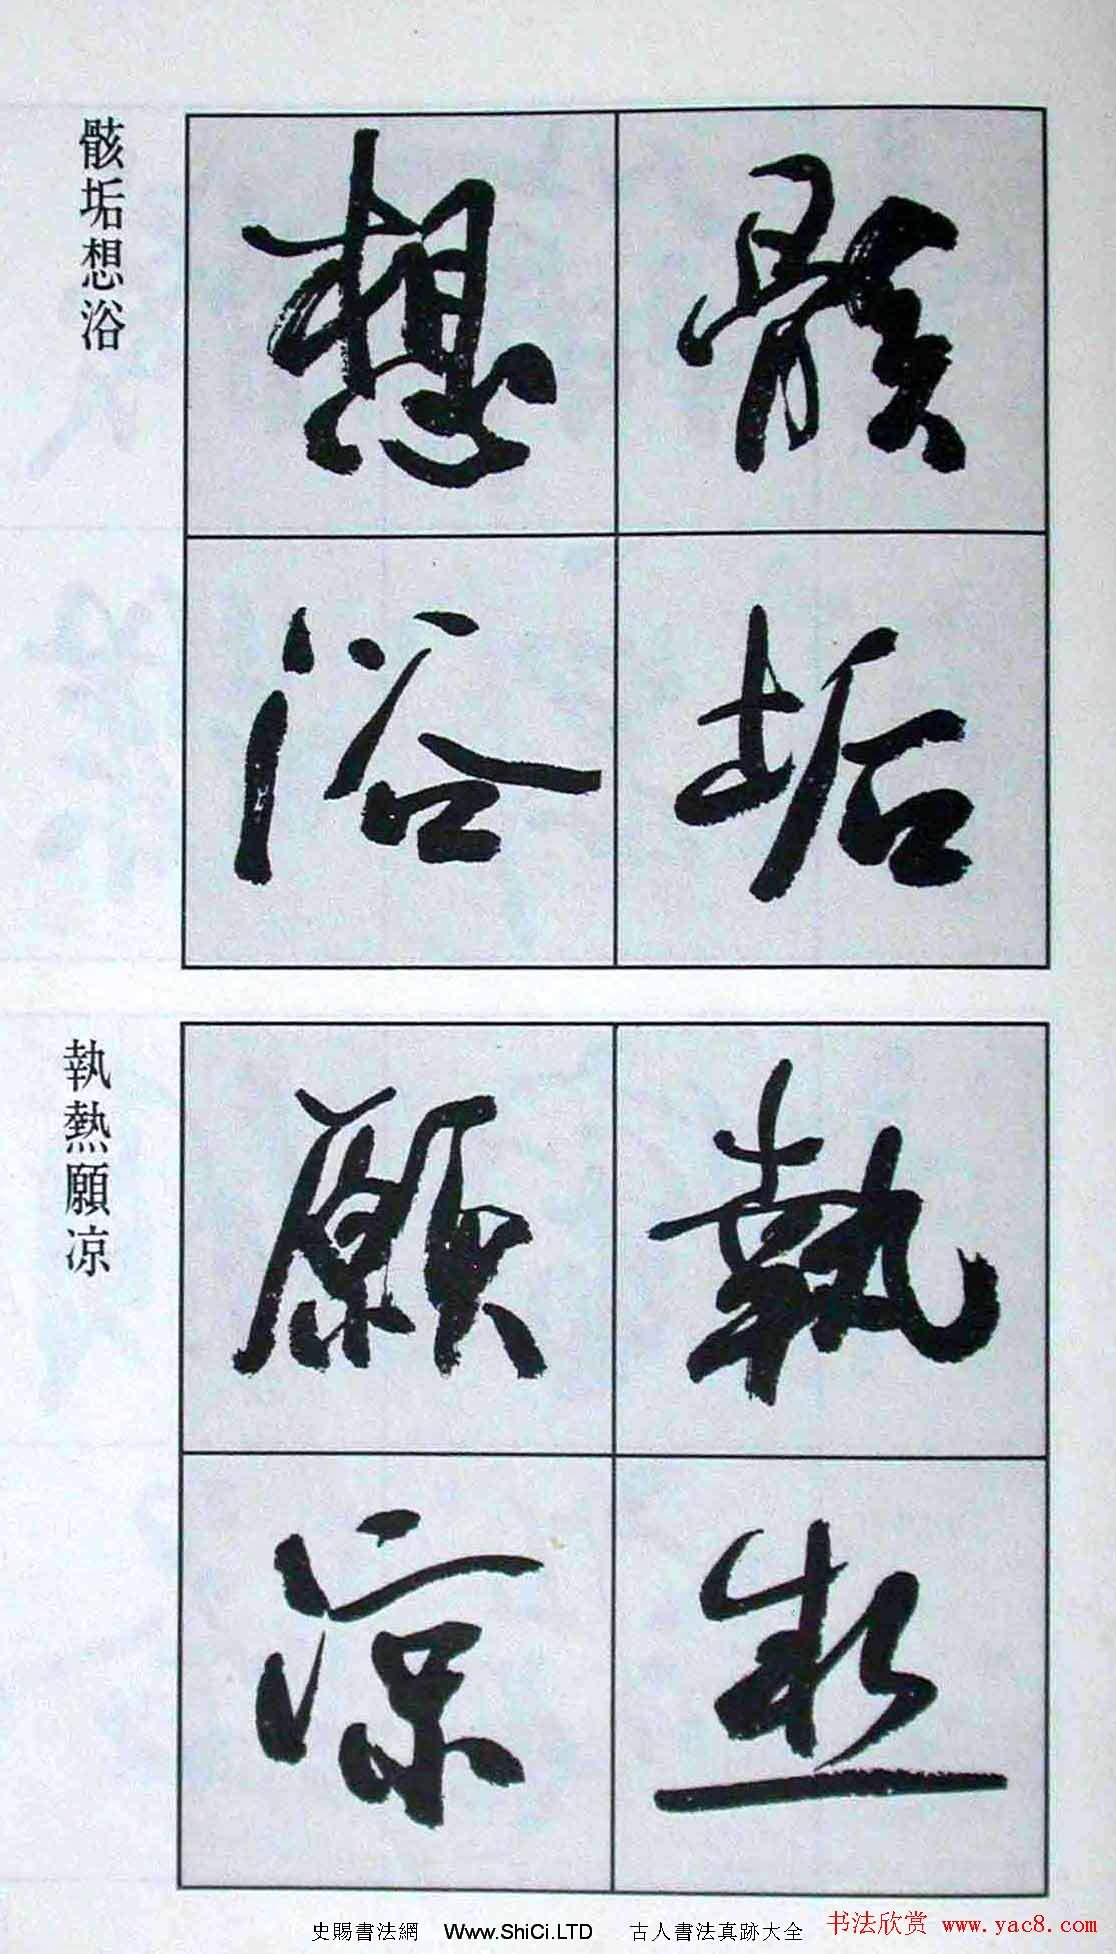 骸垢想浴
骸垢
想浴
執熱願凉
執熱
願凉
史賜書法網 Www.ShiCi.LTD 古人書法真跡大全
书法欣赏 www.yac8.com